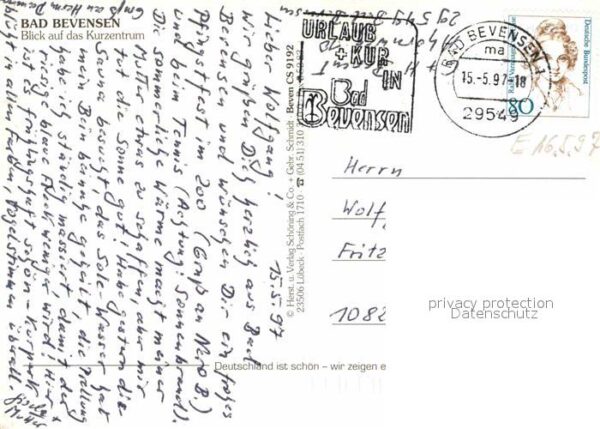 BAD BEVENSEN
Blick auf das Kurzentrum
15.5.97
Lieber Wolfgang!
Wir grüßen Dich herzlich aus Bad
Bevensen und wünschen Dir ein frohes
Pfingstfest im Zoo (Gruß an Nero B.)
und beim Tennis (Achtung: Sonnenbrand).
Die sommerliche Wärme macht meiner
Mutter etwas zu schaffen, aber mir
tut die Sonne gut! Habe gestern die
Sauna besucht, das Sole Wasser hat
mein Bein beinahe geheilt, die Schwellung
habe ich ständig massiert, damit der
riesige blaue Fleck weniger wird! Hier
ist's frühlingshaft schön - Kurpark
blüht in allen Farben, Vogelstimmen überall
© Herst. u. Verlag Schöning & Co. + Gebr. Schmidt
23506 Lübeck · Postfach 1710 · ☎ (04 51) 310
Beven CS 9192
URLAUB
+ KUR
IN
Bad
Bevensen
BAD BEVENSEN 1
ma
15.-5.97-18
29549
Deutsche Bundespost
80
E 16.5.97
Herrn
Wolf
Fritz
1082
privacy protection
Datenschutz
Deutschland ist schön – wir zeigen e